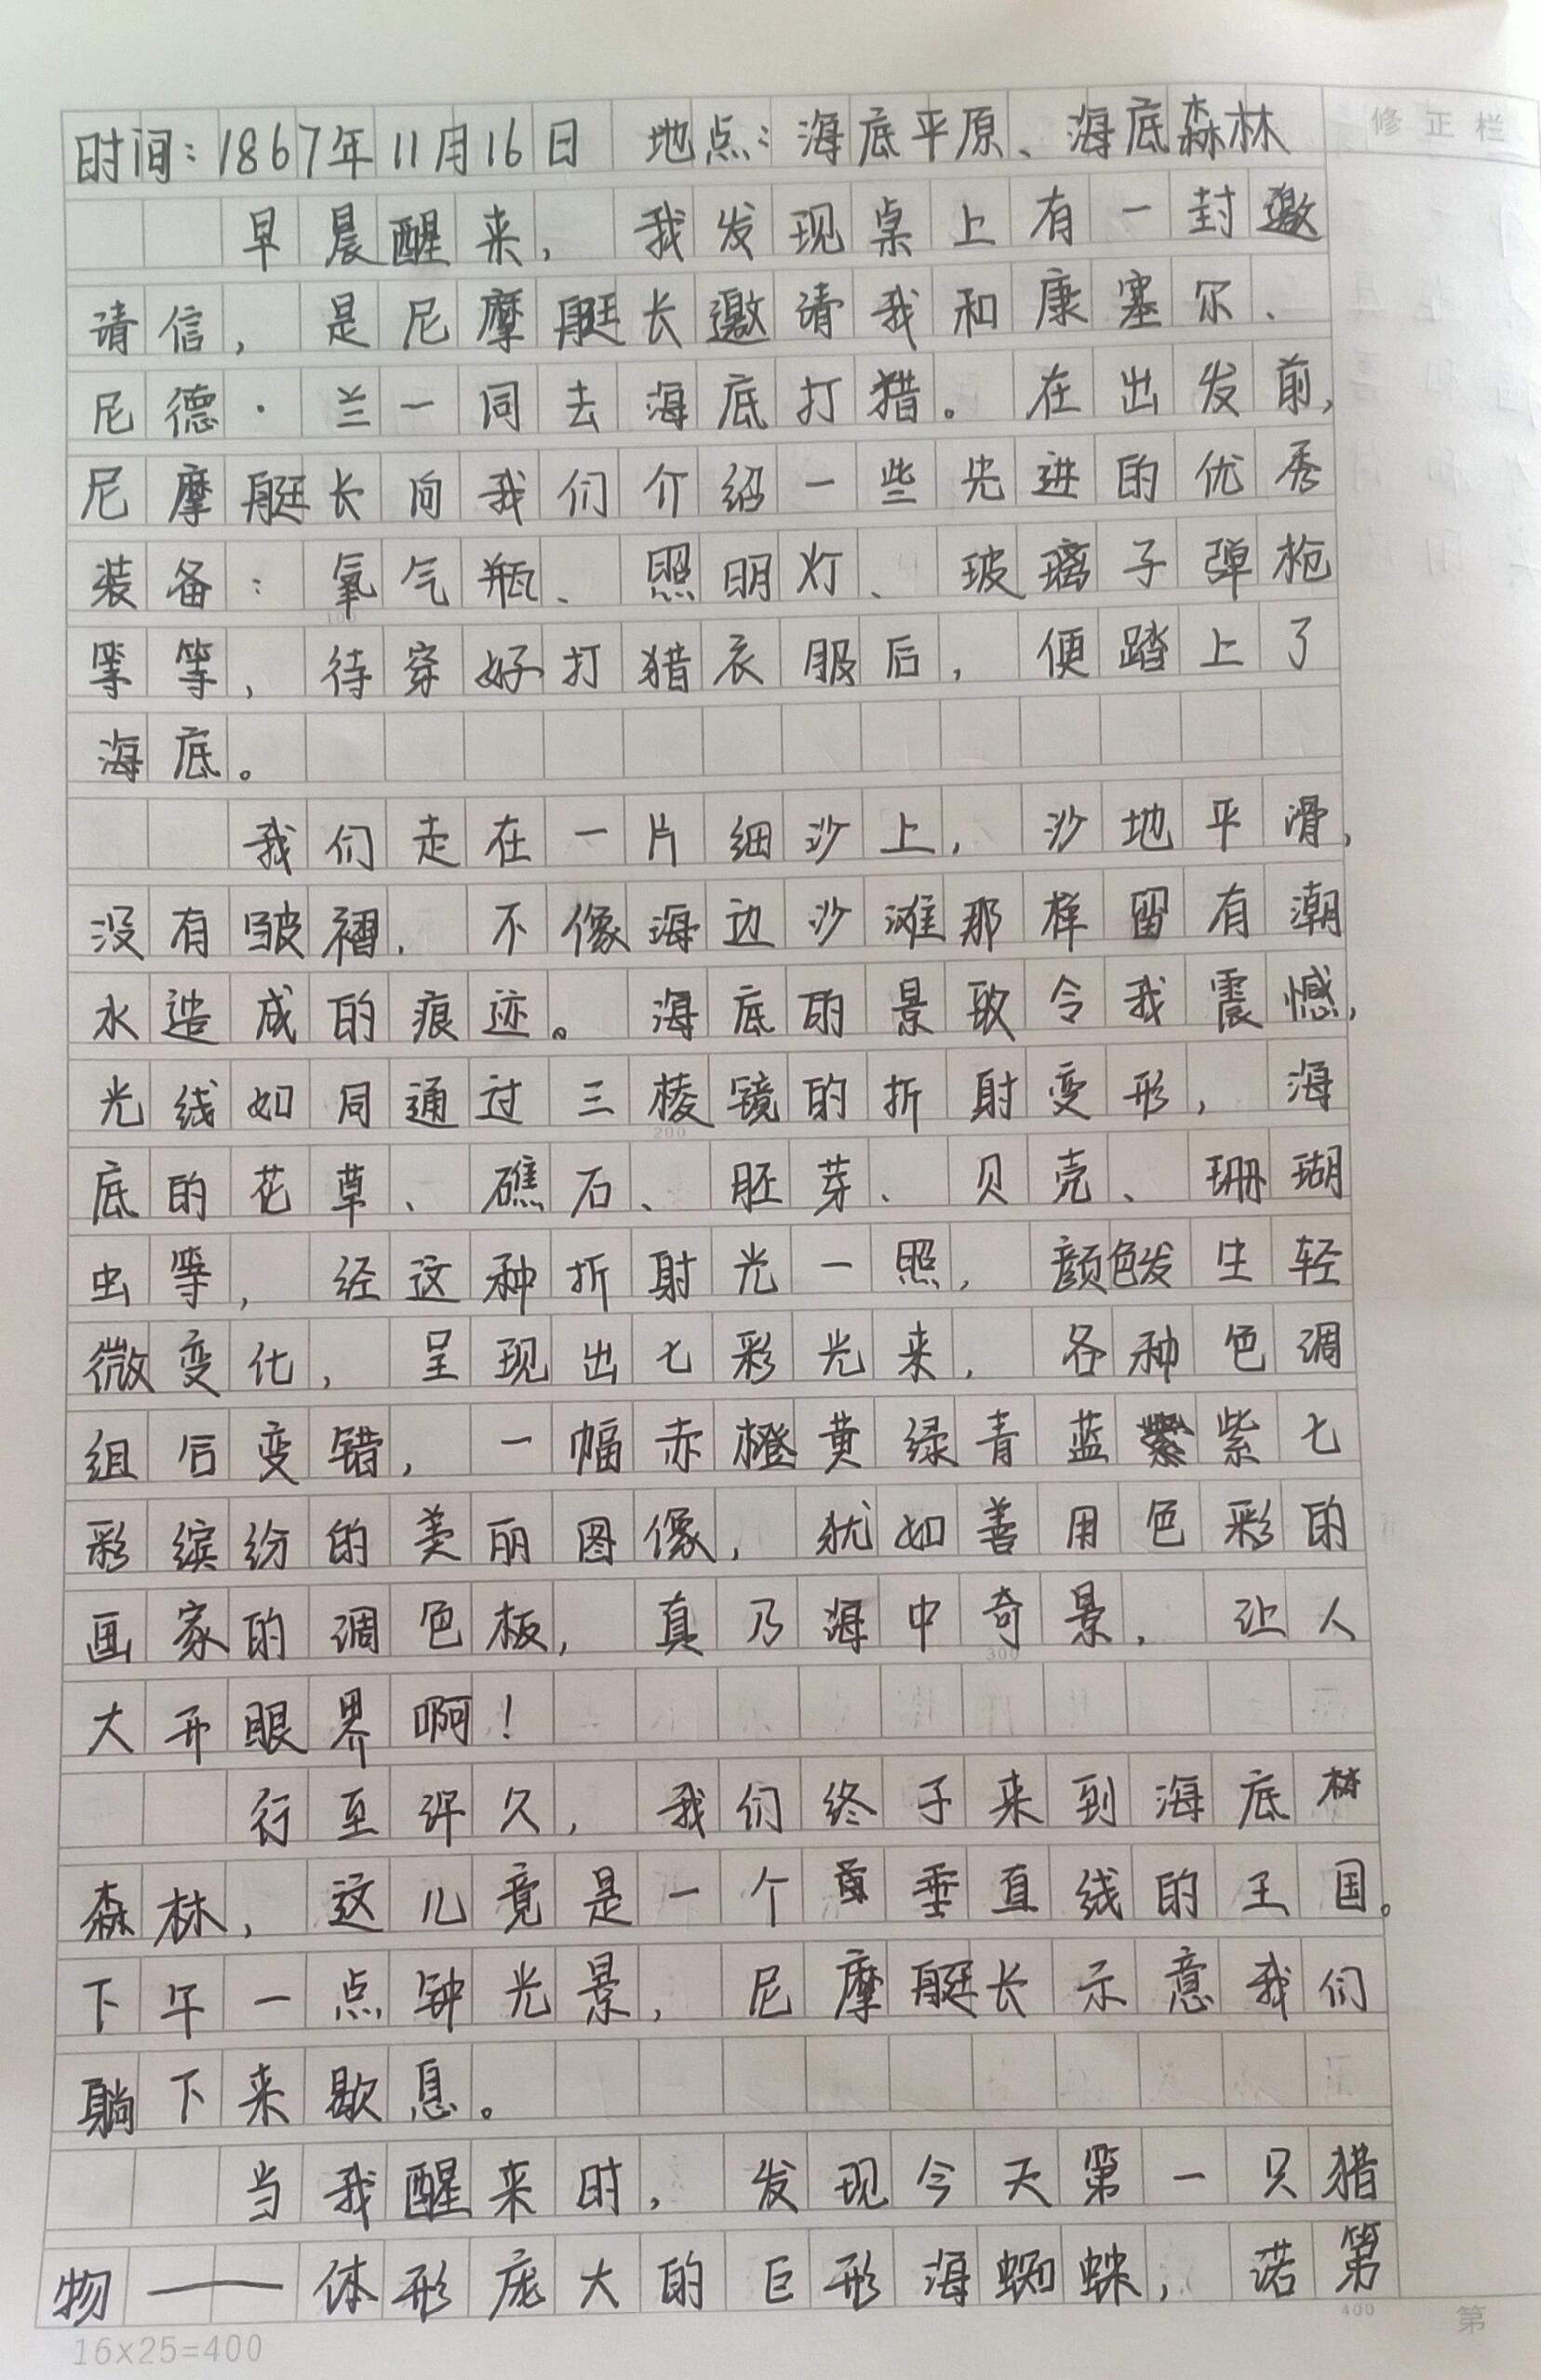 时间：1867年11月16日 地点：海底平原、海底森林
修正栏
早晨醒来，我发现桌上有一封邀
请信，是尼摩艇长邀请我和康塞尔、
尼德·兰一同去海底打猎。在出发前，
尼摩艇长向我们介绍一些先进的优秀
装备：氧气瓶、照明灯、玻璃子弹枪
等等，待穿好打猎衣服后，便踏上了
海底。
我们走在一片细沙上，沙地平滑，
没有皱褶，不像海边沙滩那样留有潮
水造成的痕迹。海底的景致令我震憾，
光线如同通过三棱镜的折射变形，海
200
底的花草、礁石、胚芽、贝壳、珊瑚
虫等，经这种折射光一照，颜色发生轻
微变化，呈现出七彩光来，各种色调
组后变错，一幅赤橙黄绿青蓝紫七
彩缤纷的美丽图像，犹如善用色彩的
画家的调色板，真乃海中奇景，让人
300
大开眼界啊！
行至许久，我们终于来到海底
森林，这儿竟是一个垂直线的王国。
下午一点钟光景，尼摩艇长示意我们
躺下来歇息。
当我醒来时，发现今天第一只猎
物——体形庞大的巨形海蜘蛛，诺第
400
第
16×25=400